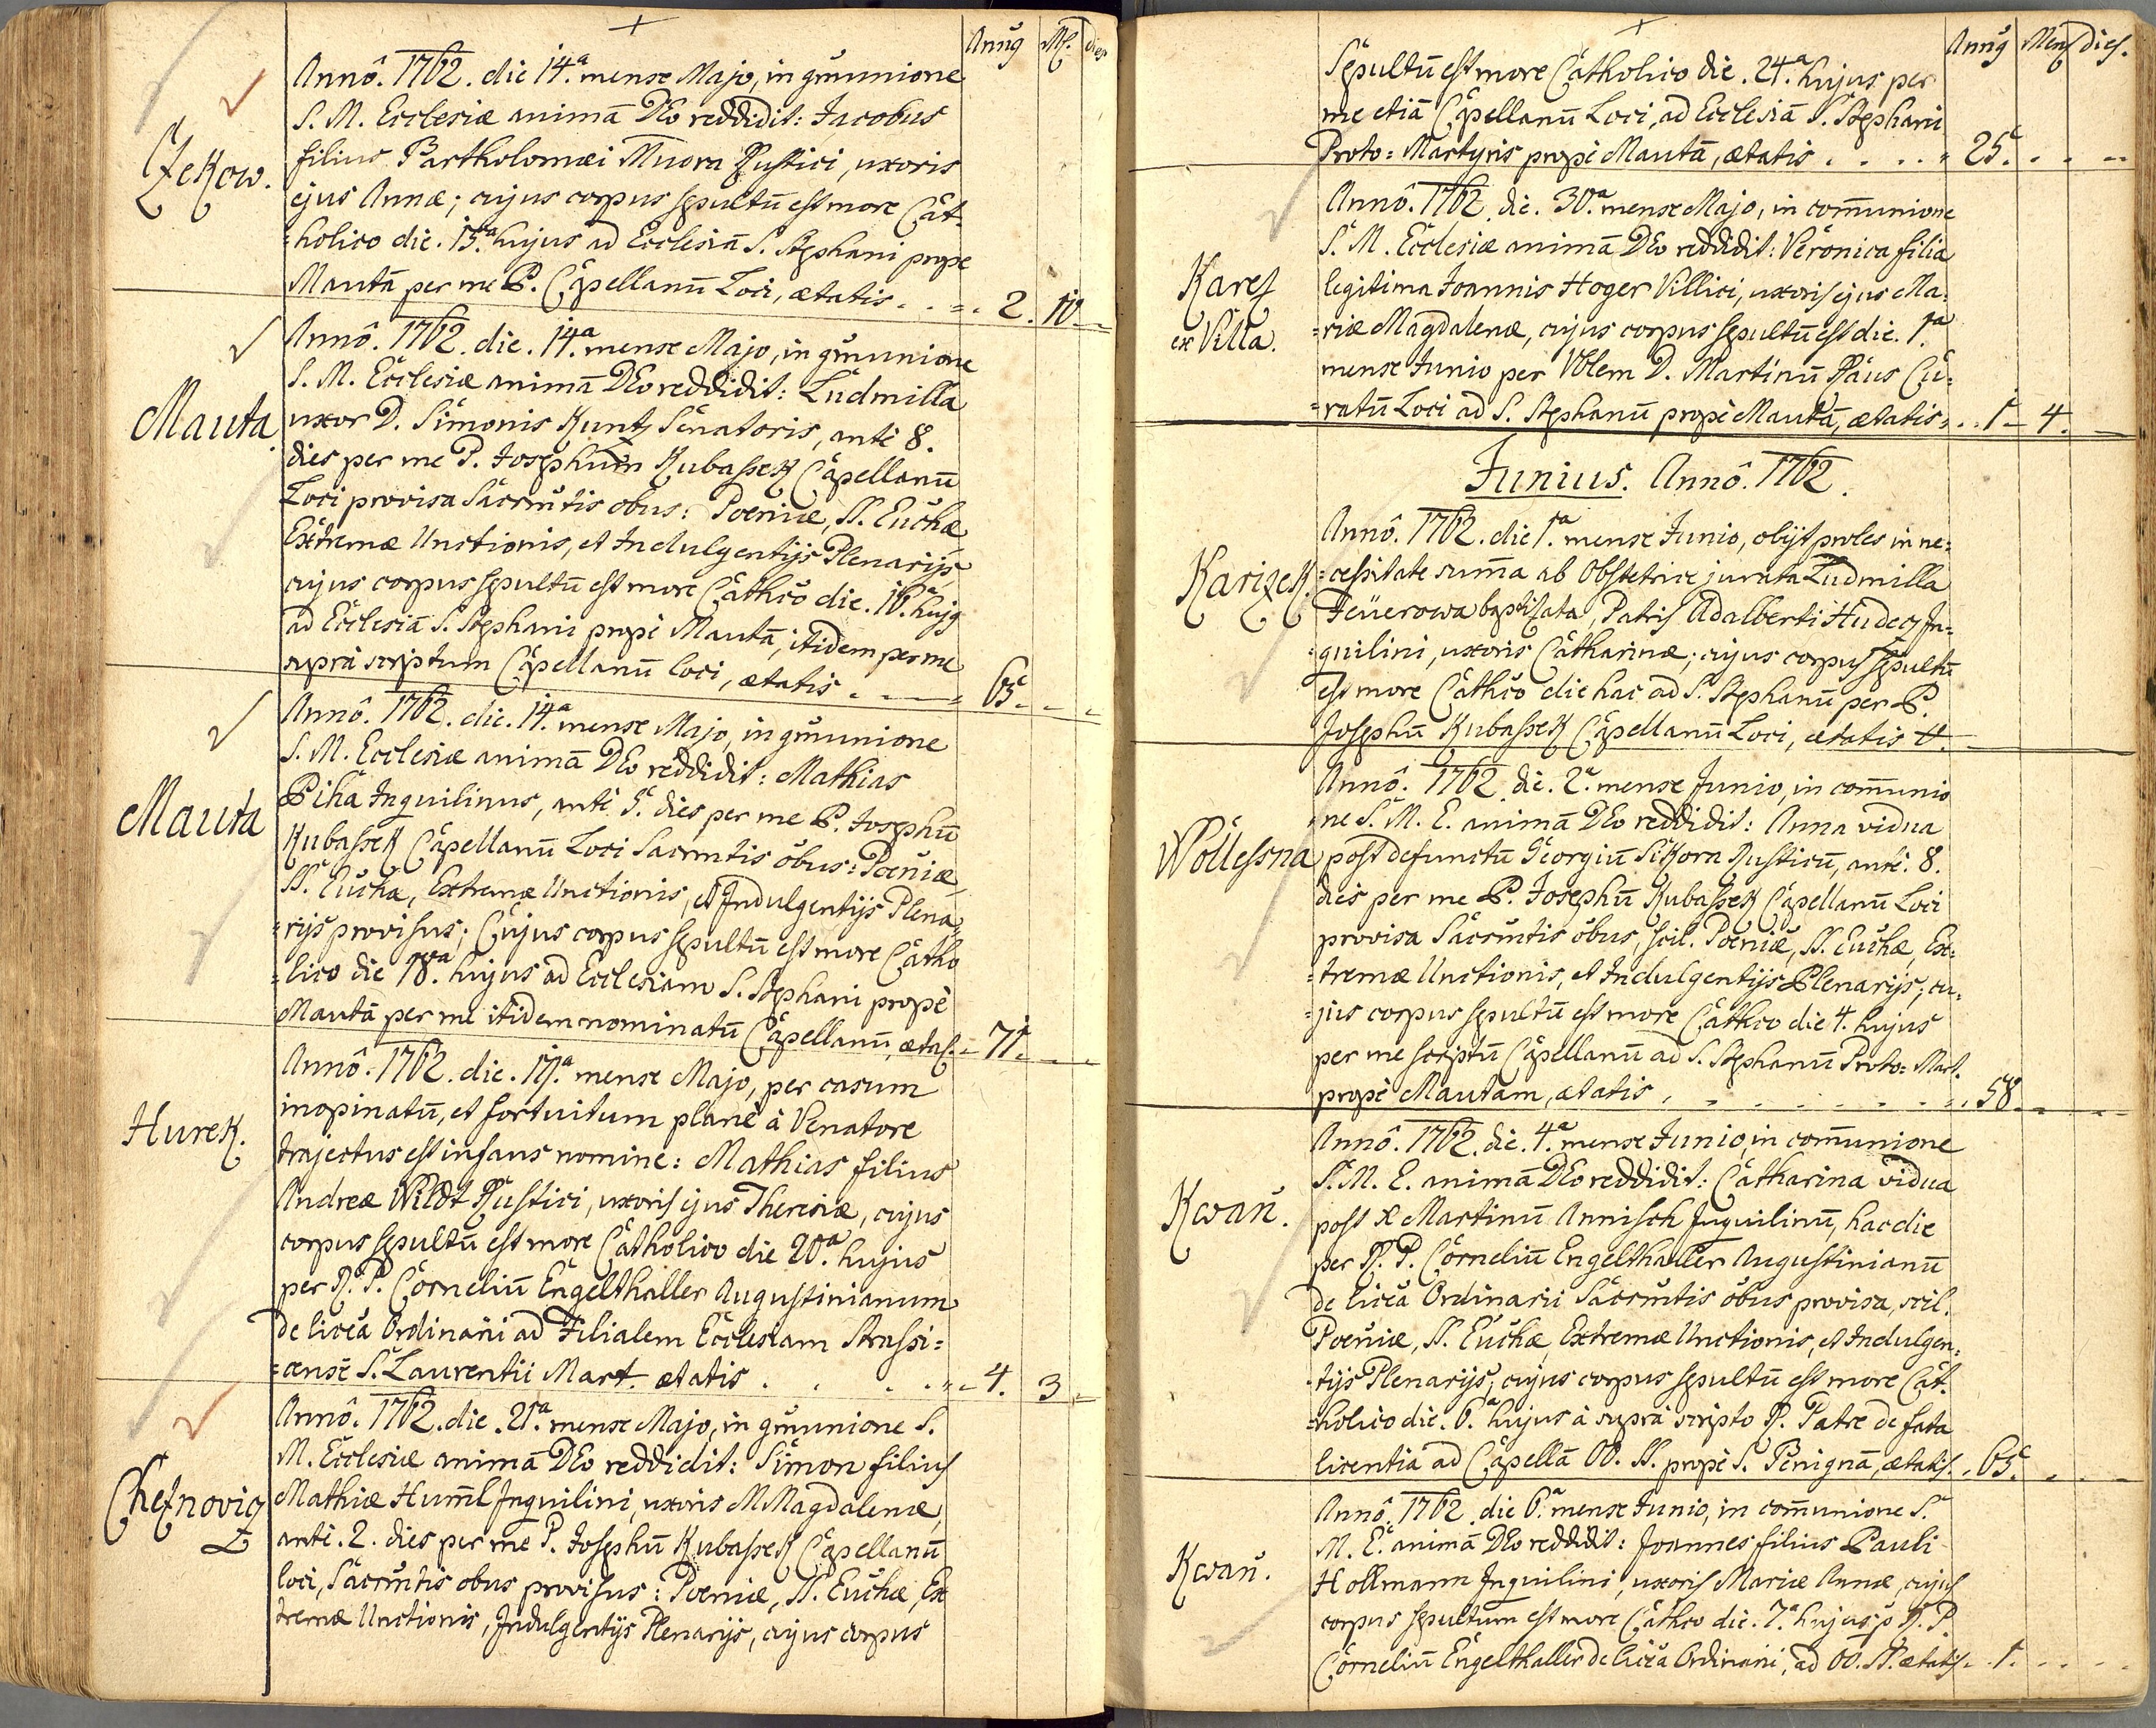 Annus Ms. dies
Czekow.
Annô. 1762. die 14.a mense Majo, in gmunione
S. M. Ecclesiæ animā DEo reddidit: Jacobus
filius Bartholomæi Muora Rustici, uxoris
ejus Annæ; cujus corpus sepultū est more Cat-
=holico die. 15.a hujus ad Ecclesiā S. Stephani prope
Mautā per me P. Capellanū Loci, ætatis . . 2. 10.
Mauta.
Annô. 1762. die. 14.a mense Majo, in gmunione
S. M. Ecclesiæ animā DEo reddidit: Ludmilla
uxor D. Simonis Kuntz Senatoris, antè 8.
dies per me P. Josephum Kubassek Capellanū
Loci provisa Sacrm̄tis ōbus: Poen̄iæ, SS. Euch̄æ
Extremæ Unctionis, et Indulgentijs Plenarijs,
cujus corpus sepultū est more Cathc̄o die. 16.a hujg
ad Ecclesiā S. Stephani propè Mautā; itidem per me
suprà scriptum Capellanū loci, ætatis . . 65.
Mauta
Annô. 1762. die. 14.a mense Majo, in gmunione
S. M. Ecclesiæ animā DEo reddidit: Mathias
Piha Inquilinus, antè 5. dies per me P. Josephū
Kubassek Capellanū Loci Sacrm̄tis ōbus: Poen̄iæ
SS. Euch̄a, Extremæ Unctionis, et Indulgentijs Plena=
=rijs provisus; Cujus corpus sepultū est more Catho
=lico die 18.a hujus ad Ecclesiam S. Stephani propè
Mautā per me itidem nominatū Capellanū, ætas. . 71.
Hurek.
Annô. 1762. die. 17.a mense Majo, per casum
inopinatū, et fortuitum planè à Venatore
trajectus est infans nomine: Mathias filius
Andreæ Wildt Rustici, uxoris ejus Theresiæ, cujus
corpus sepultū est more Catholico die 20.a hujus
per R. P. Corneliū Engelthaller Augustinianum
de lic̄eā Ordinarii ad Filialem Ecclesiam Strassi=
=cense S. Laurentii Mart. ætatis . . . 4. 3
Cheznovicz
Annô. 1762. die. 21.a mense Majo, in gmunione S.
M. Ecclesiæ animā DEo reddidit: Simon filius
Mathiæ Hum̄l Inquilini, uxoris M Magdalenæ,
antè. 2. dies per me P. Josephū Kubassek Capellanū
loci, Sacrm̄tis obus provisus: Poeniæ, SS. Euch̄æ, Ex
tremæ Unctionis, Indulgentijs Plenarijs, cujus corpus
Annus Mens dies.
Sepultū est more Catholico die. 24.a hujus per
me etiā Capellanū Loci, ad Ecclesiā S. Stephani
Proto=Martyris propè Mautā, ætatis . . . . 25.
Karez
ex Villa.
Annô. 1762. die. 30.a mense Majo, in com̄unione
S. M. Ecclesiæ animā DEo reddidit: Veronica filia
legitima Joannis Hoger Villici, uxoris ejus Ma=
=riæ Magdalenæ, cujus corpus sepultū est die. 1.a
mense Junio per Vblem D. Martinū Raus Cu=
=ratū Loci ad S. Stephanū propè Mautā, ætatis . . 1. 4.
Junius. Annô. 1762.
Karizek.
Annô. 1762. die 1.a mense Junio, obijt proles in ne=
=cessitate sum̄a ab Obstetrice jurata Ludmilla
Feüerowa baptisata, Patris Adalberti Hudecz In=
=quilini, uxoris Catharinæ; cujus corpus sepultū
est more Cathc̄o die hac ad S. Stephanū per P.
Josephū Kubassek Capellanū Loci, ætatis 0.
Wollessna
Annô. 1762. die. 2.a mense Junio, in com̄unio
ne S. M. E. animā DEo reddidit: Anna vidua
post defunctū Georgiū Sikora Rusticū, antè. 8.
dies per me P. Josephū Kubassek Capellanū Loci
provisa Sacrm̄tis ōbus, scil. Poeniæ, SS. Euch̄æ, Ex=
=tremæ Unctionis, et Indulgentijs Plenarijs; cu=
=jus corpus sepultū est more Cathco die 4. hujus
per me scriptū Capellanū ad S. Stephanū Proto=Mart.
propè Mautam, ætatis . . . . 58.
Kwaň.
Annô. 1762. die. 4.a mense Junio, in com̄unione
S. M. E. animā DEo reddidit: Catharina vidua
post Martinū Annisch Inquilinū, hac die
per R. P. Corneliū Engelthaller Augustinianū
de lic̄eā Ordinarii Sacrm̄tis ōbus provisa, scil.
Poen̄iæ, SS. Euch̄æ, Extremæ Unctionis, et Indulgen=
=tijs Plenarijs; cujus corpus sepultū est more Cat=
=holico die. 6.a hujus à suprà scripto R. Patre de fata
licentiā ad Capellā OO. SS. propè S. Benignā, ætatis. . 65.
Kwaň.
Annô. 1762. die 6.a mense Junio, in com̄unione S.
M. E. animā DEo reddidit: Joannes filius Pauli
Hollmann Inquilini, uxoris Mariæ Annæ, cujus
corpus sepultum est more Cathco die. 7.a hujus p R. P.
Corneliū Engelthaller de lic̄eā Ordinarii, ad OO. SS. ætatis. . 1.